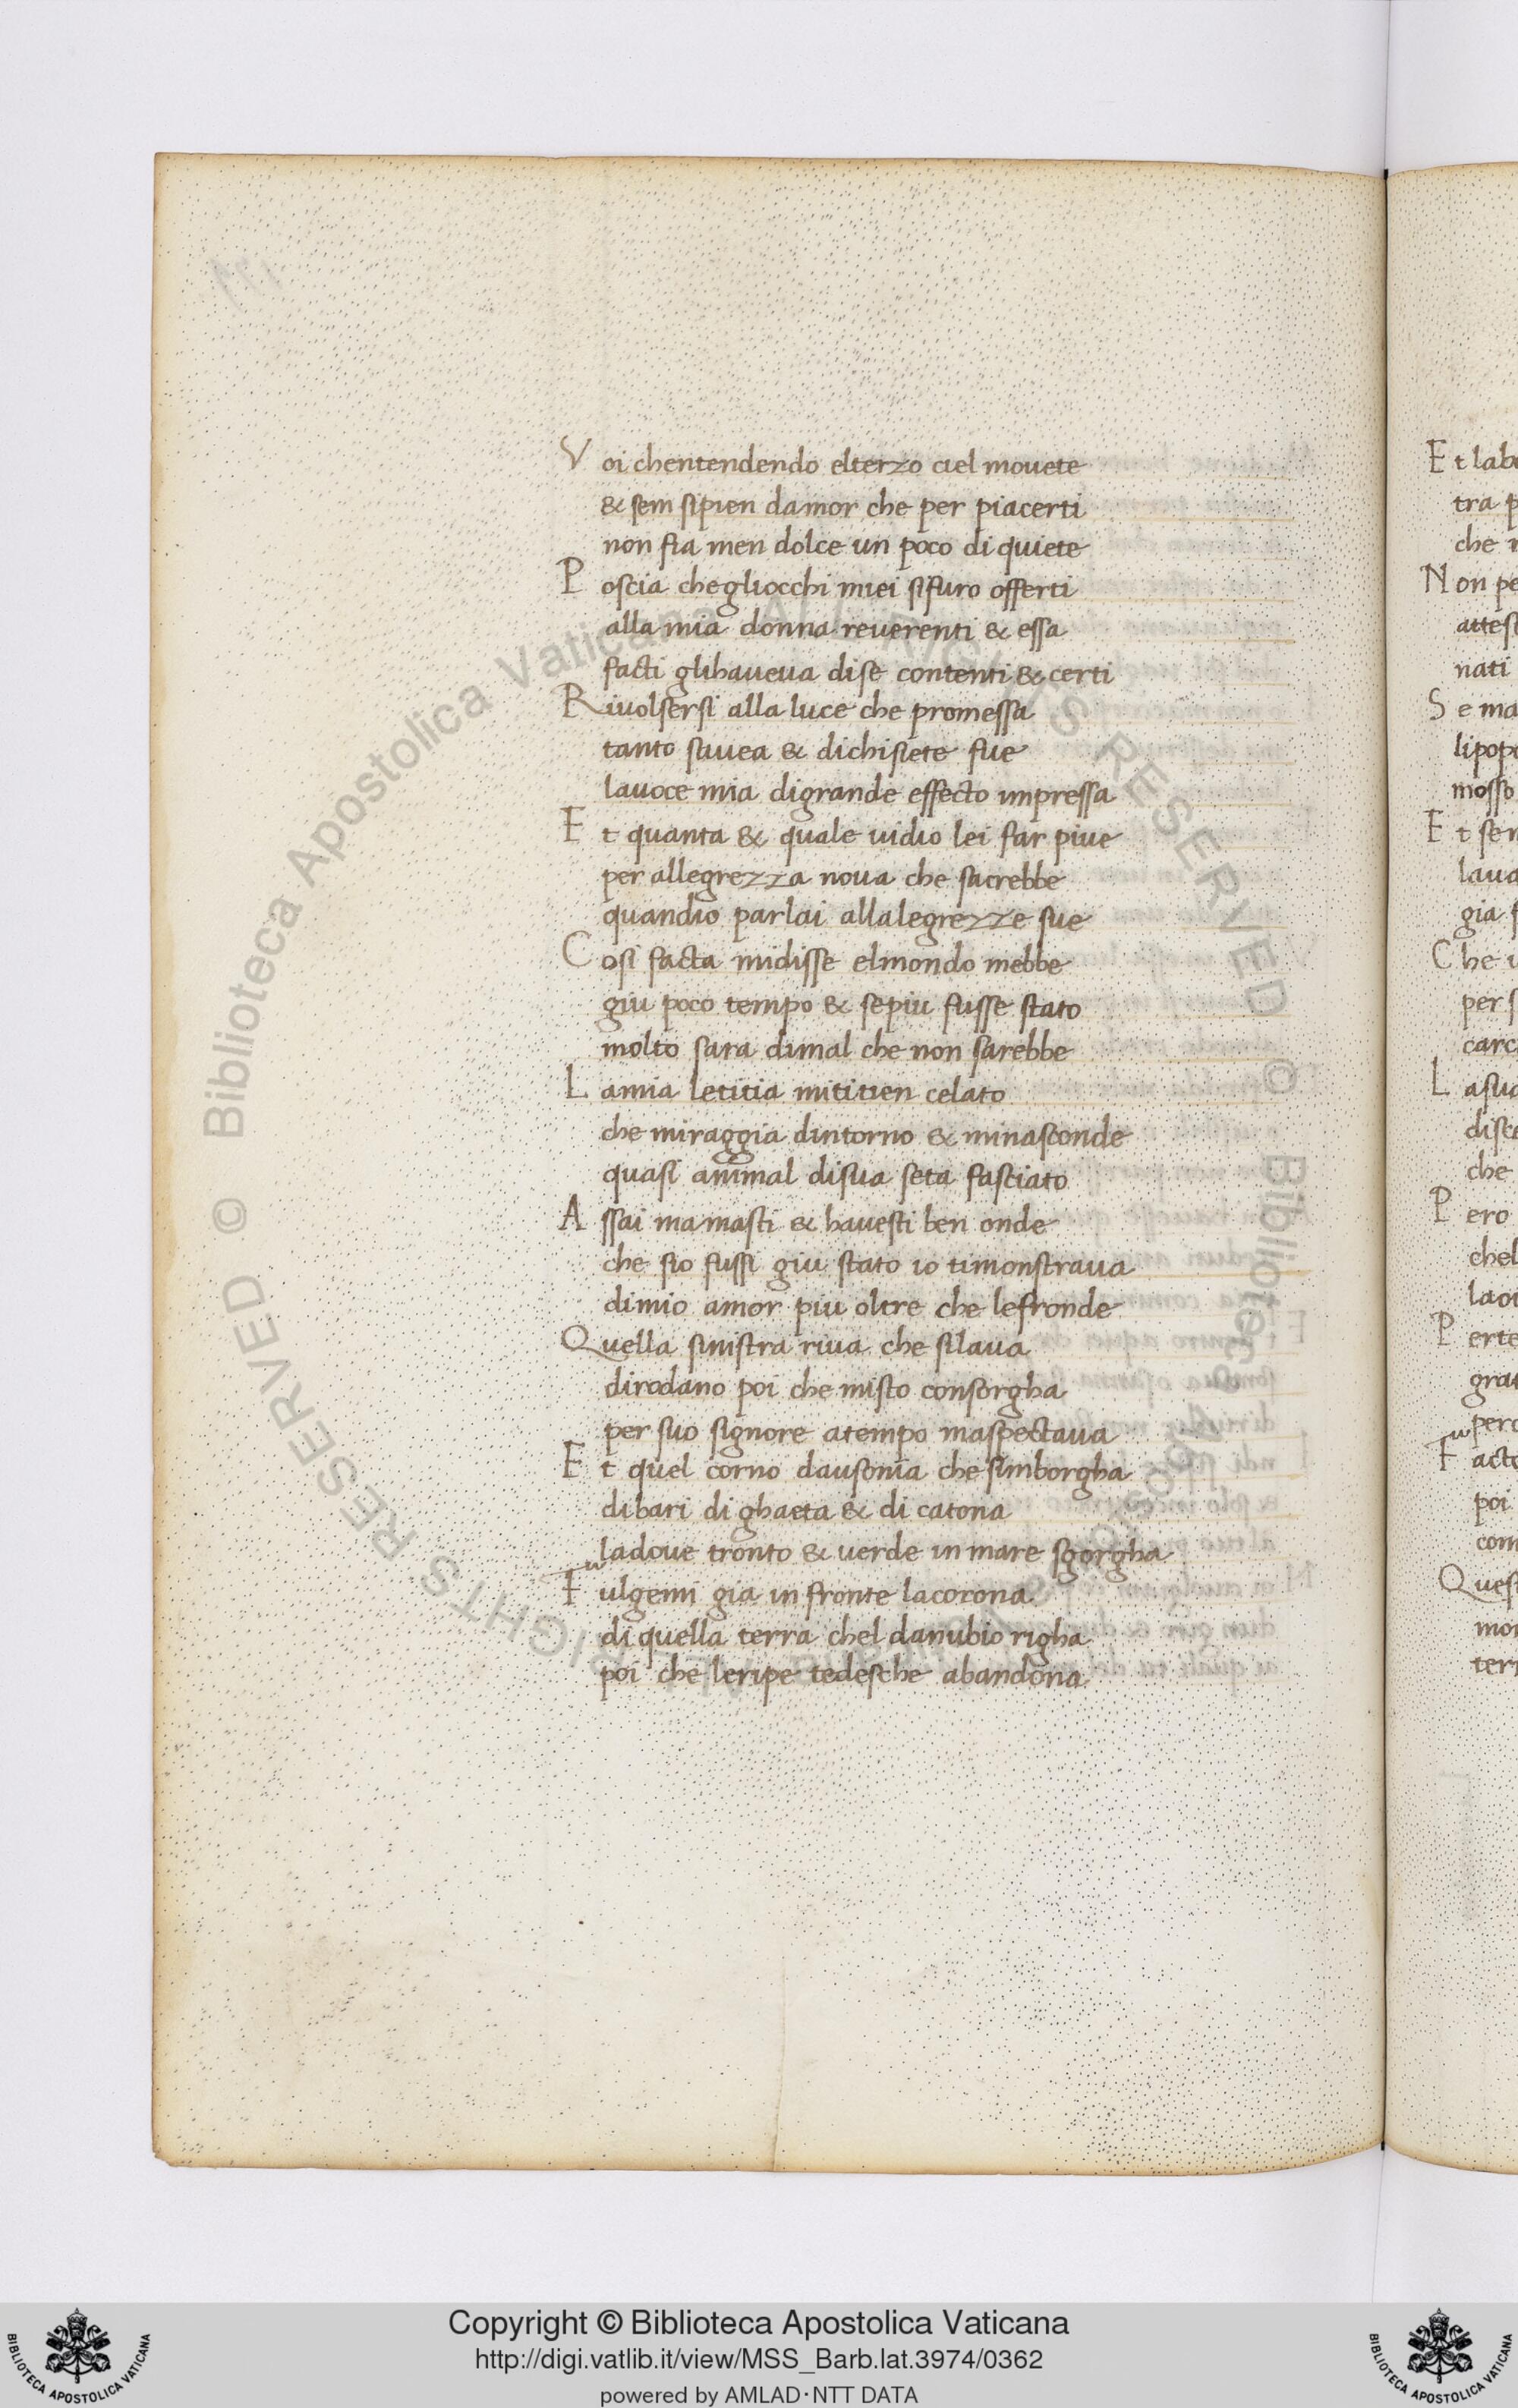 Voi chentendendo elterzo ciel mouete
& sem sipien damor che per piacerti
non fia men dolce un poco di quiete
Poscia chegliocchi miei sifuro offerti
alla mia donna reuerenti & essa
facti glihaueua dise contenti & certi
Riuolsersi alla luce che promessa
tanto sauea & dichisiete fue
lauoce mia digrande effecto impressa
Et quanta & quale uidio lei far piue
per allegrezza noua che sacrebbe
quandio parlai allalegrezze sue
Cosi facta midisse elmondo mebbe
giu poco tempo & sepiu fusse stato
molto sara dimal che non sarebbe
Lamia letitia mititien celato
che miraggia dintorno & minasconde
quasi animal disua seta fasciato
Assai mamasti & hauesti ben onde
che sio fussi giu stato io timonstraua
dimio amor piu oltre che lefronde
Quella sinistra riua che silaua
dirodano poi che misto consorgha
per suo signore atempo maspectaua
Et quel corno dausonia che simborgha
dibari di ghaeta & di catona
ladoue tronto & uerde in mare sgorgha
Fulgemi gia in fronte lacorona
di quella terra chel danubio righa
poi che leripe tedesche abandona
Et lab
tra p
che
Non pe
attes
nati
Se ma
lipop
mosso
Et se
laua
gia s
Che
per s
carc
Lasua
disc
che
Pero
chel
lao
Perte
grat
perc
Facto
poi
com
Ques
mo
terr
© Biblioteca Apostolica Vaticana ALL RIGHTS RESERVED
© Biblioteca Apostolica Vaticana ALL RIGHTS RESERVED
Copyright © Biblioteca Apostolica Vaticana
http://digi.vatlib.it/view/MSS_Barb.lat.3974/0362
powered by AMLAD·NTT DATA
BIBLIOTECA APOSTOLICA VATICANA
BIBLIOTECA APOSTOLICA VATICANA